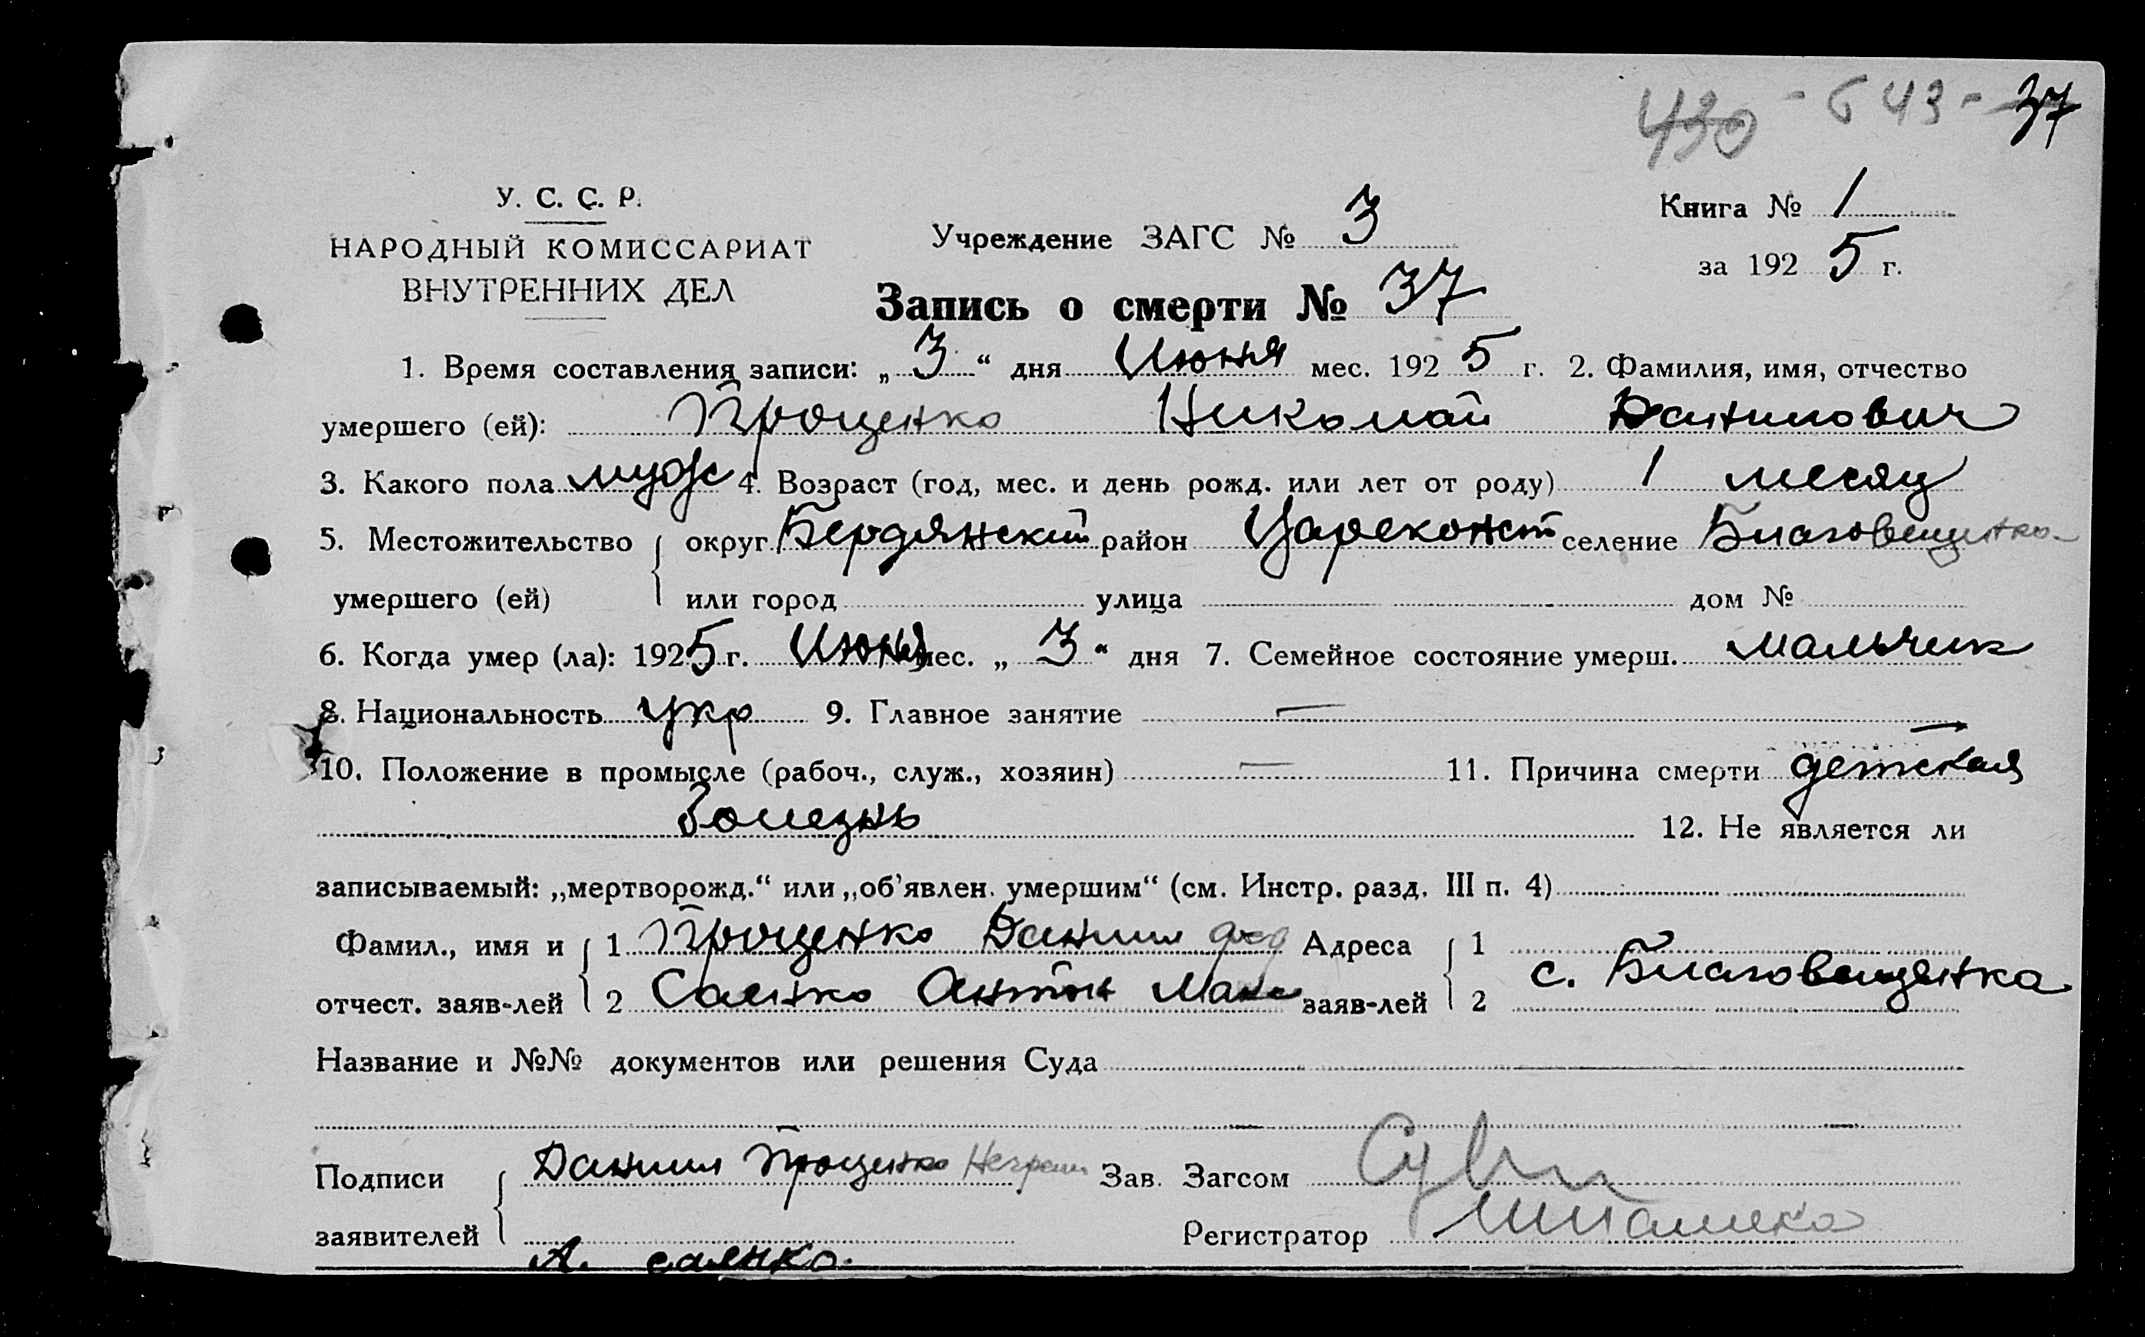 430 - 543 - 37
У. С. С. Р.
НАРОДНЫЙ КОМИССАРИАТ
ВНУТРЕННИХ ДЕЛ
Учреждение ЗАГС № 3
Книга № 1
за 1925 г.
Запись о смерти № 37
1. Время составления записи: „3“ дня Июня мес. 1925 г. 2. Фамилия, имя, отчество
умершего (ей): Проценко Николай Данилович
3. Какого пола муж 4. Возраст (год, мес. и день рожд. или лет от роду) 1 месяц
5. Местожительство округ Бердянский район Цареконст селение Благовещенко-
умершего (ей) или город улица дом №
6. Когда умер (ла): 1925 г. Июня мес. „3“ дня 7. Семейное состояние умерш. мальчик
8. Национальность укр 9. Главное занятие —
10. Положение в промысле (рабоч., служ., хозяин) — 11. Причина смерти детская
болезнь 12. Не является ли
записываемый: „мертворожд.“ или „об'явлен. умершим“ (см. Инстр. разд. III п. 4)
Фамил., имя и 1 Проценко Данил фед Адреса 1
отчест. заяв-лей 2 Саенко Антон Макс заяв-лей 2 с. Благовещенка
Название и №№ документов или решения Суда
Подписи Данил Проценко Зав. Загсом
заявителей Регистратор
А. саенко.